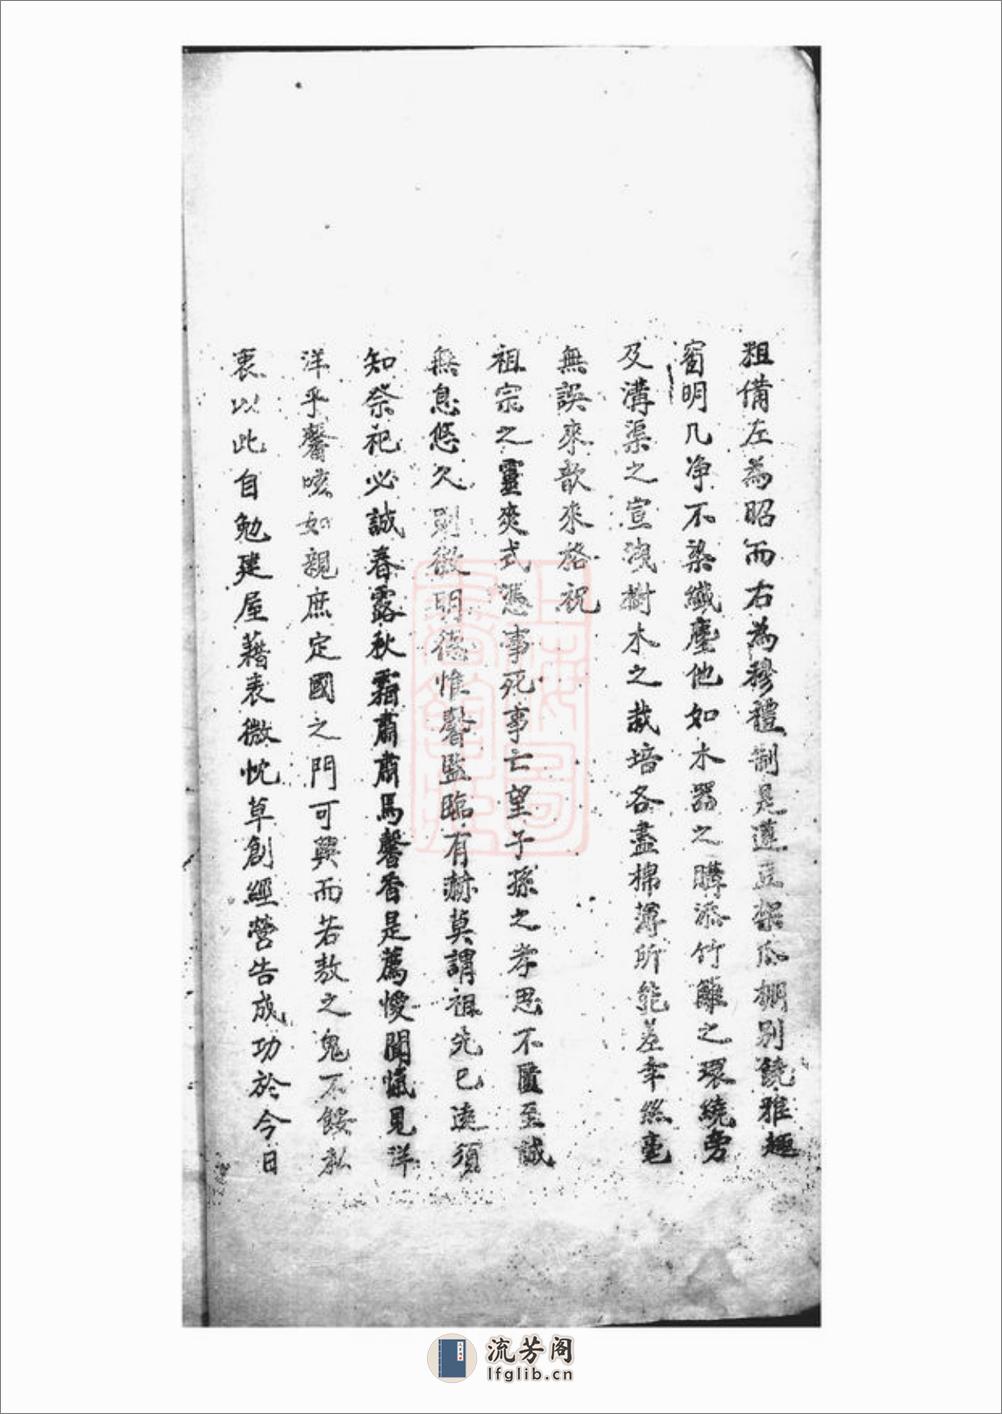 粗備左為昭而右為穆禮制是遵豆架瓜棚別饒雅趣
窗明几净不染纖塵他如木器之購添竹籬之環繞旁
及溝渠之宣洩樹木之栽培各盡棉薄所能差幸絲毫
無誤來歆來格祝
祖宗之靈爽式憑事死事亡望子孫之孝思不匱至誠
無息悠久則徵明德惟馨監臨有赫莫謂祖先已遠須
知祭祀必誠春露秋霜肅肅焉馨香是薦優聞愾見洋
洋乎謦咳如親庶定國之門可興而若敖之鬼不餒私
衷以此自勉建屋藉表微忱草創經營告成功於今日
上海圖書館藏
流芳阁
lfglib.cn